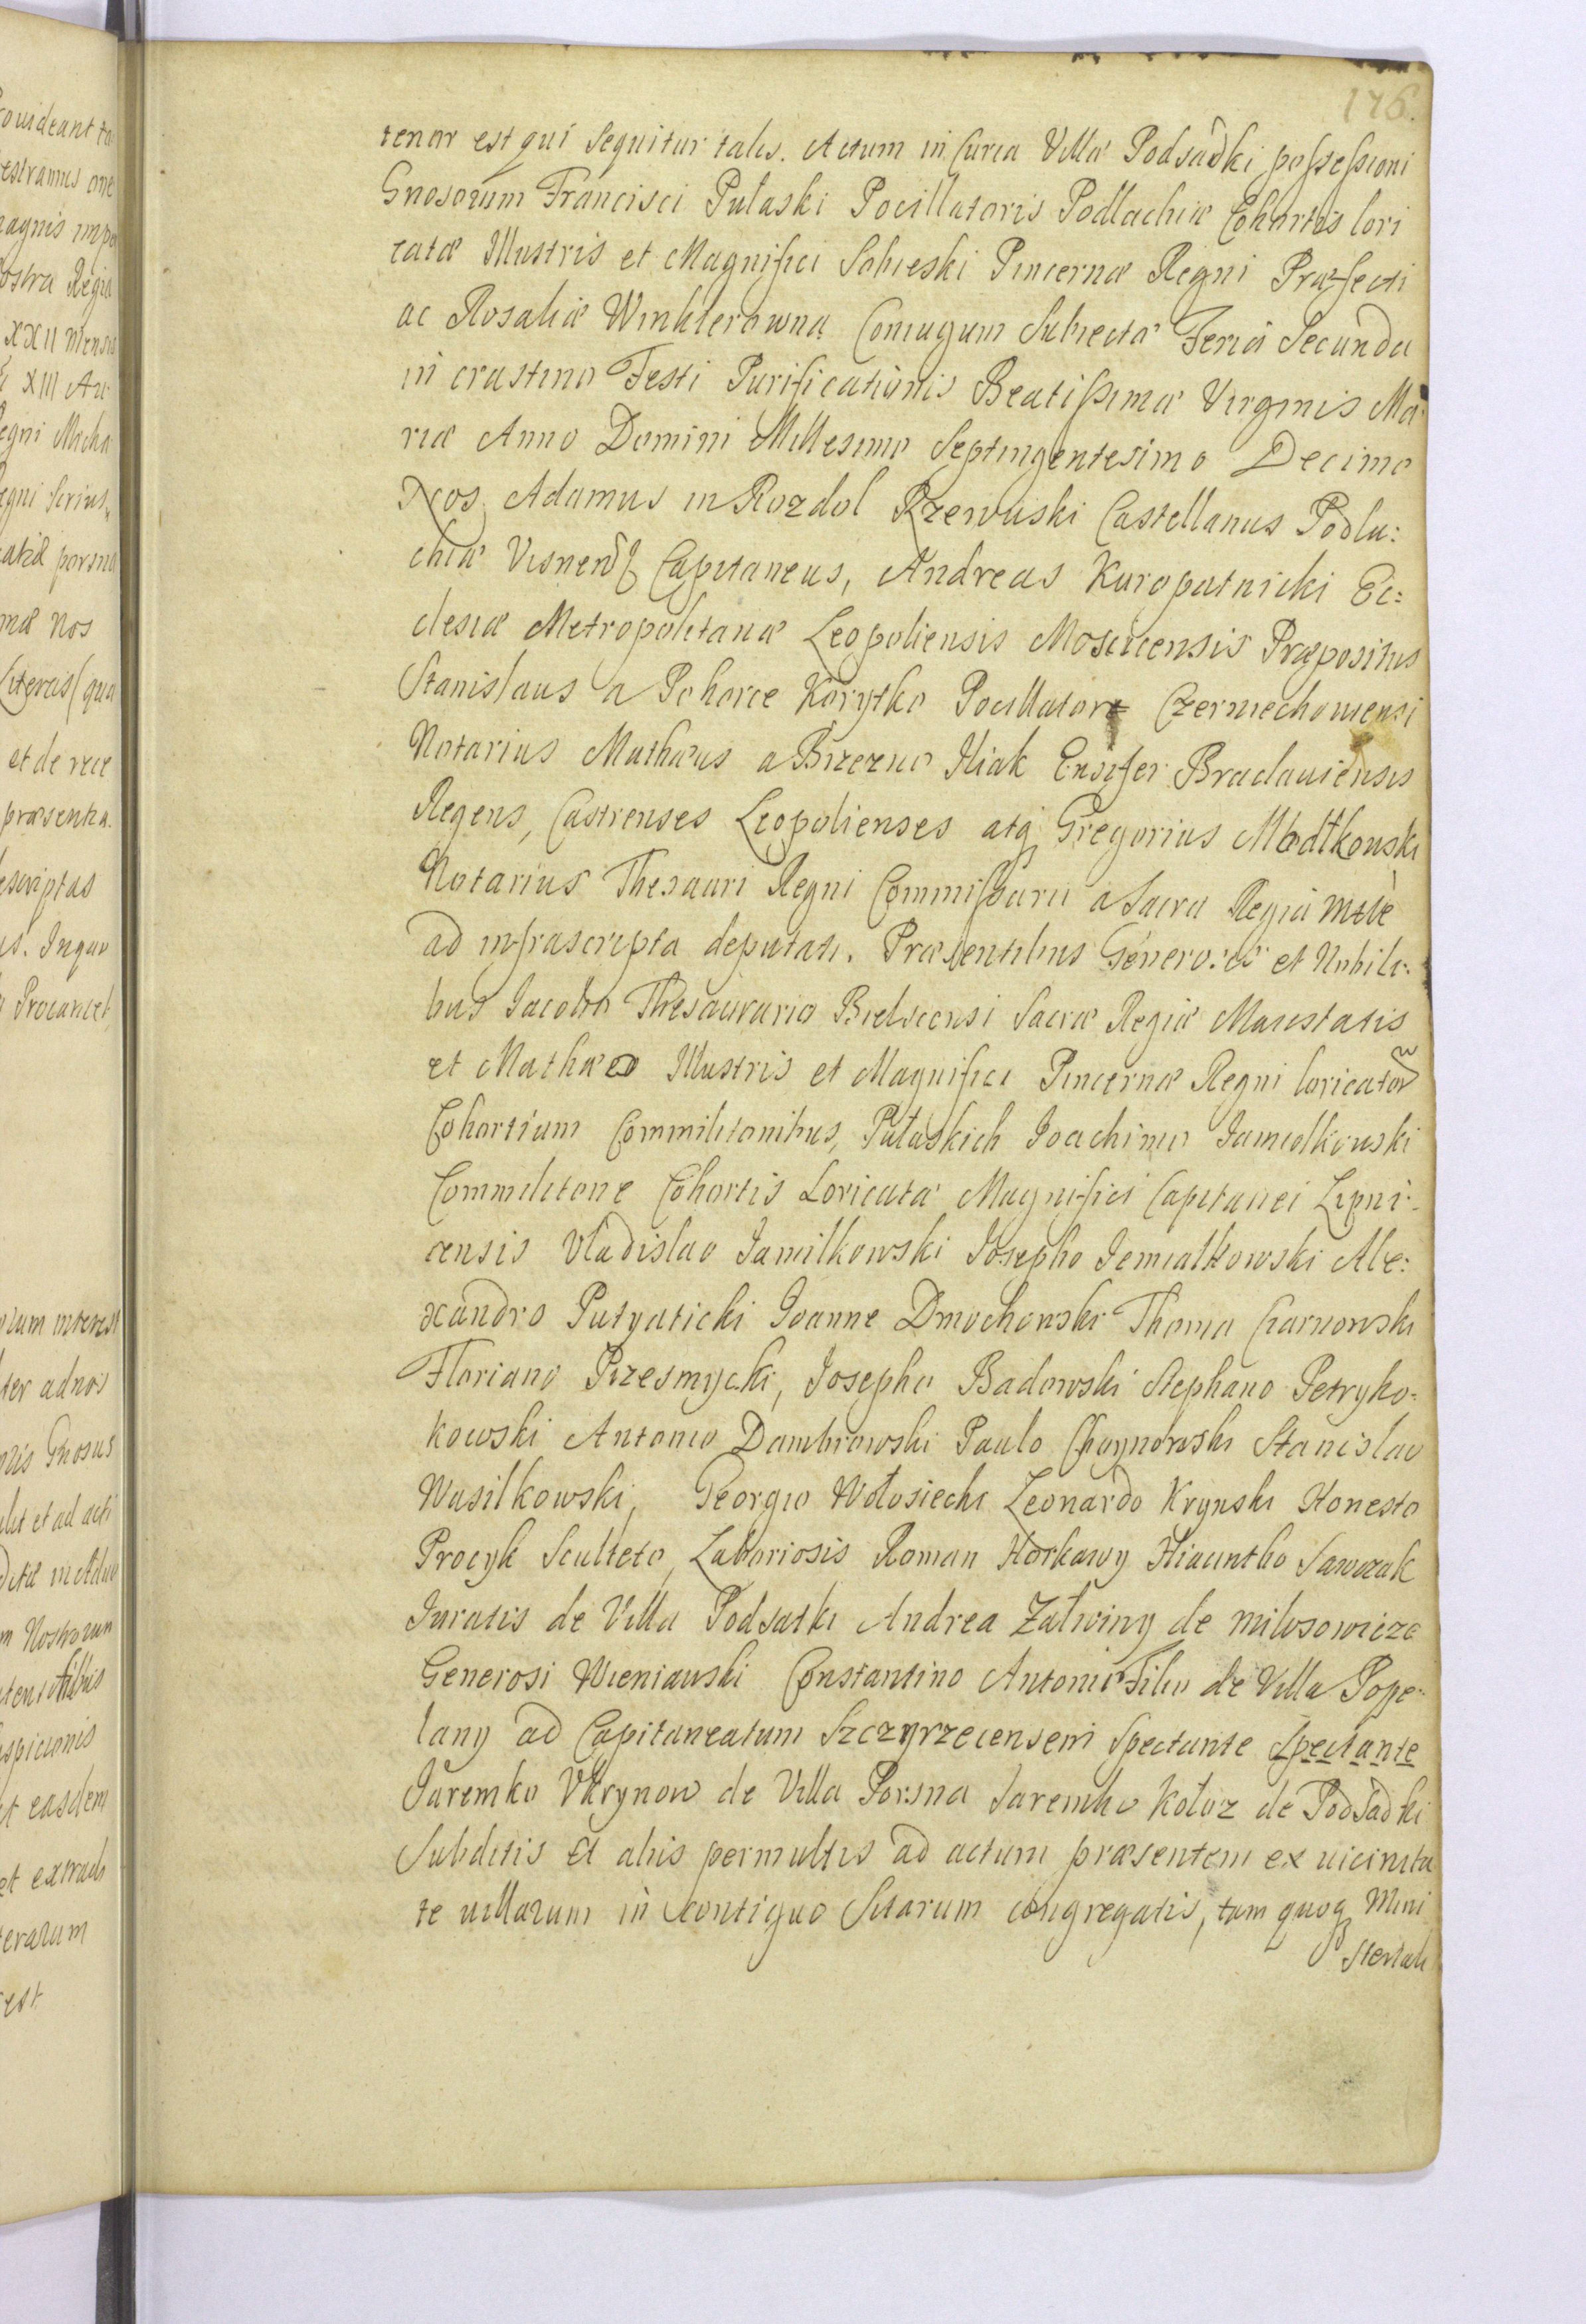 176.
tenor est qui sequitur talis. Actum in Curia Villæ Podsadki possessioni
Gnosorum Francisci Pułaski Pocillatoris Podlachiæ Cohortis lori
catæ Illustris et Magnifici Sobieski Pincernæ Regni Præfecti
ac Rosaliæ Winklerowna Coniugum Subiecta Feria Secunda
in crastino Festi Purificationis Beatissimæ Virginis Ma
riæ Anno Domini Millesimo Septingentesimo Decimo
Nos Adamus in Rozdol Rzewuski Castellanus Podla:
chiæ Capitaneus, Andreas Kuropatnicki Ec:
clesiæ Metropolitanæ Leopoliensis Moscicensis Præpositus
Stanislaus a Pohorce Korytko Pocillator Czerniechouiensi
Notarius Mathæus a Brzezno Iliak Ensifer Braclauiensis
Regens, Castrenses Leopolienses atq Gregorius Modtkouski
Notarius Thesauri Regni Commissarii a Sacra Regia Mtte
ad infrascripta deputati. Præsentibus Generosis et Nobili:
bus Iacobo Thesaurario Bielscensi Sacræ Regiæ Maiestatis
et Mathæo Illustris et Magnifici Pincernæ Regni loricator
Cohortium Commilitonibus, Pułaskich Ioachimo Iamiolkouski
Commilitone Cohortis Loricatæ Magnifici Capitanei Lipni:
censis Vladislao Iamilkowski Iosepho Iemialkowski Ale:
xandro Putyaticki Ioanne Dmochowski Thoma Czarnowski
Floriano Przesmycki, Josepho Badowski Stephano Petryko:
kowski Antonio Dambrowski Paulo Choynowski Stanislao
Wasilkowski, Georgio Wołosiecki Leonardo Krynski Honesto
Procyk Sculteto, Laboriosis Roman Horkawy Hiacintho Sawczak
Iuratis de Villa Podsatki Andrea Zaliwiny de milosowicze
Generosi Wieniawski Constantino Antonii Filio de Villa Pope:
lany ad Capitaneatum Szczyrzecensem Spectante Spectante
Jaremko Vkrynow de Villa Porsna Jaremko Kołoz de Podsadki
Subditis et aliis permultis ad actum præsentem ex uicinita
te uillarum in contiguo Sitarum congregatis, tam quoq Mini
steriali